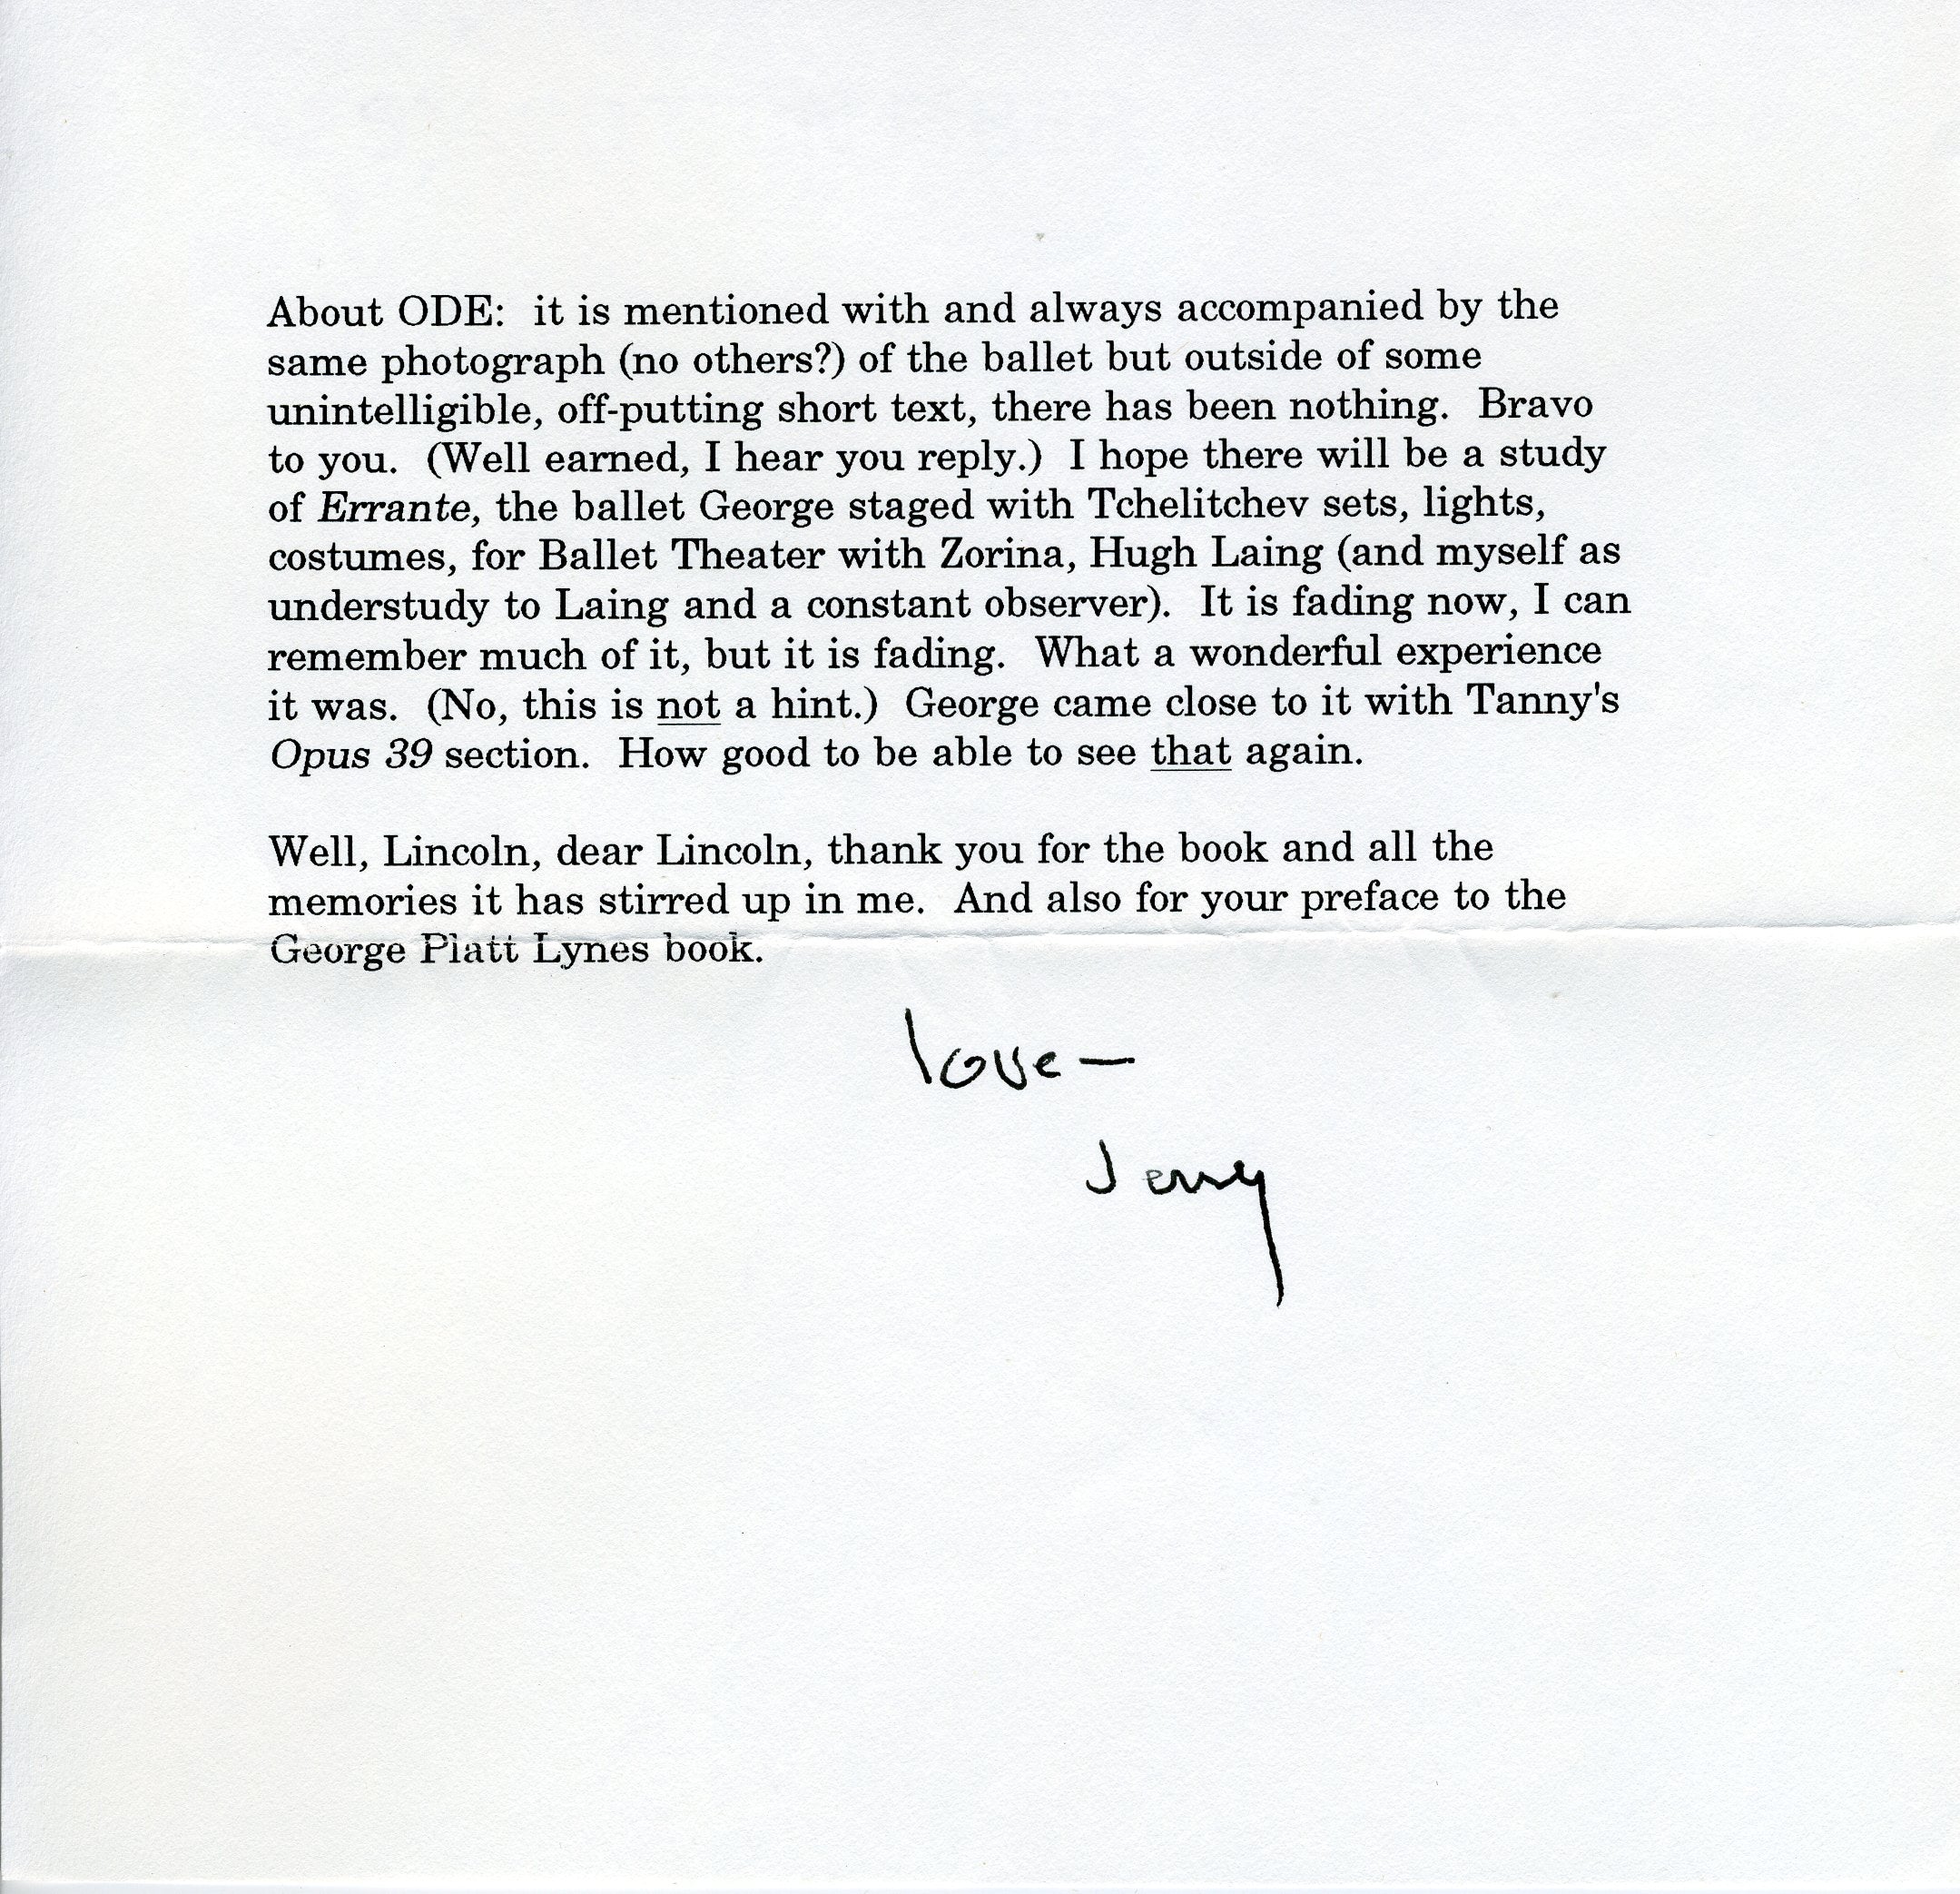 About ODE:  it is mentioned with and always accompanied by the
same photograph (no others?) of the ballet but outside of some
unintelligible, off-putting short text, there has been nothing.  Bravo
to you.  (Well earned, I hear you reply.)  I hope there will be a study
of Errante, the ballet George staged with Tchelitchev sets, lights,
costumes, for Ballet Theater with Zorina, Hugh Laing (and myself as
understudy to Laing and a constant observer).  It is fading now, I can
remember much of it, but it is fading.  What a wonderful experience
it was.  (No, this is not a hint.)  George came close to it with Tanny's
Opus 39 section.  How good to be able to see that again.

Well, Lincoln, dear Lincoln, thank you for the book and all the
memories it has stirred up in me.  And also for your preface to the
George Platt Lynes book.
love—
Jerry